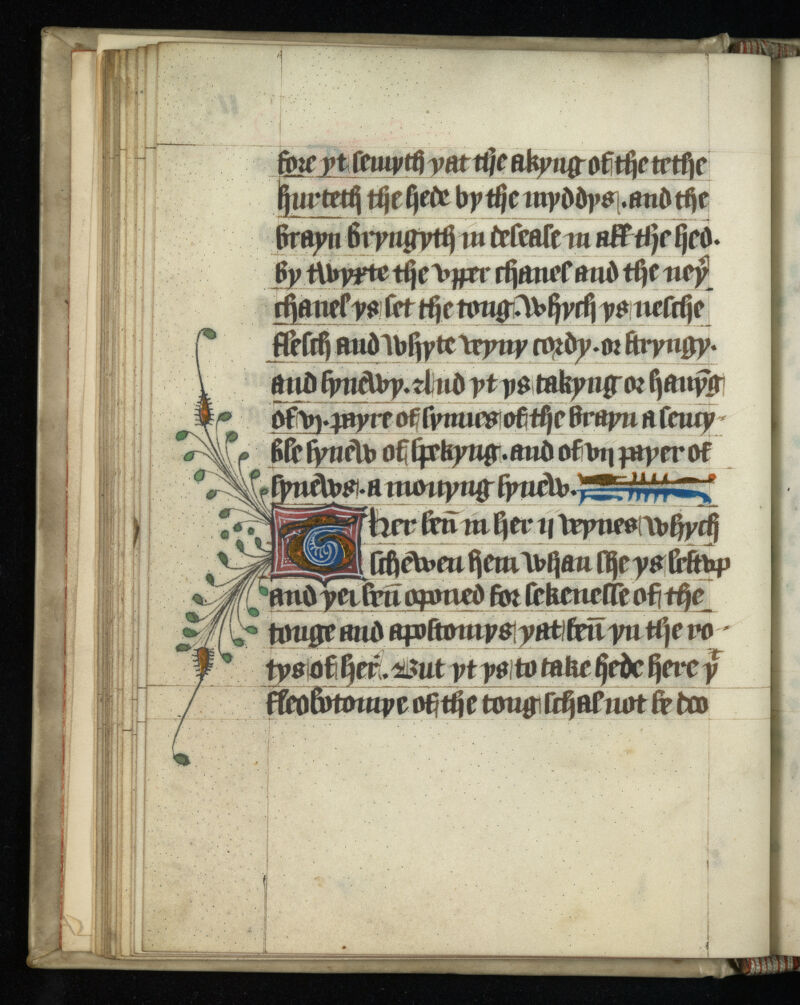 fore yt semyth yat the akyng of the tethe
hurteth the hede by the myddys. and the
brayn bryngyth in desease in all the hed.
By twyxte the vpper chanel and the ney
chanel ys set the tong. Whych ys nesche
flesch and whyte veyny cordy. or stryngy.
and synewy. And yt ys takyng or hauȳg
of vj. payre of synnes of the brayn a sency-
ble synew of spekyng. and of vij payer of
synews. a mouyng synew.
Ther ben̄ in her ij veynes whych
schewen hem whan she ys left vp
and yei ben̄ oponed for sekenesse of the
tonge and apostomys yat ben̄ yn the ro-
tys of her. But yt ys to take hede here yͭ
fleobotomye of the tong schal not be doo